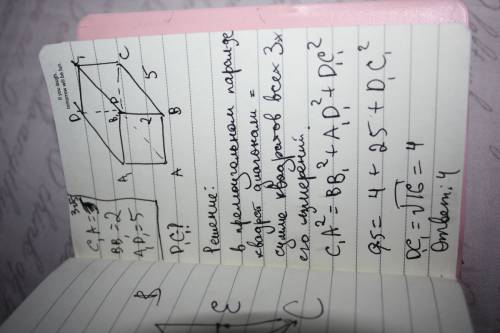 C₁A = 3√5
BB₁ = 2
A₁D₁ = 5
D₁C₁?
D₁
C₁
C
D
B₁
5
2
A₁
B
A
Решение:
В прямоугольном паралле
квадрат диагонали =
сумме квадратов всех 3х
его измерений.
C₁A² = BB₁² + A₁D₁² + D₁C₁²
45 = 4 + 25 + D₁C₁²
DC₁ = √16 = 4
Ответ: 4
B
E
C